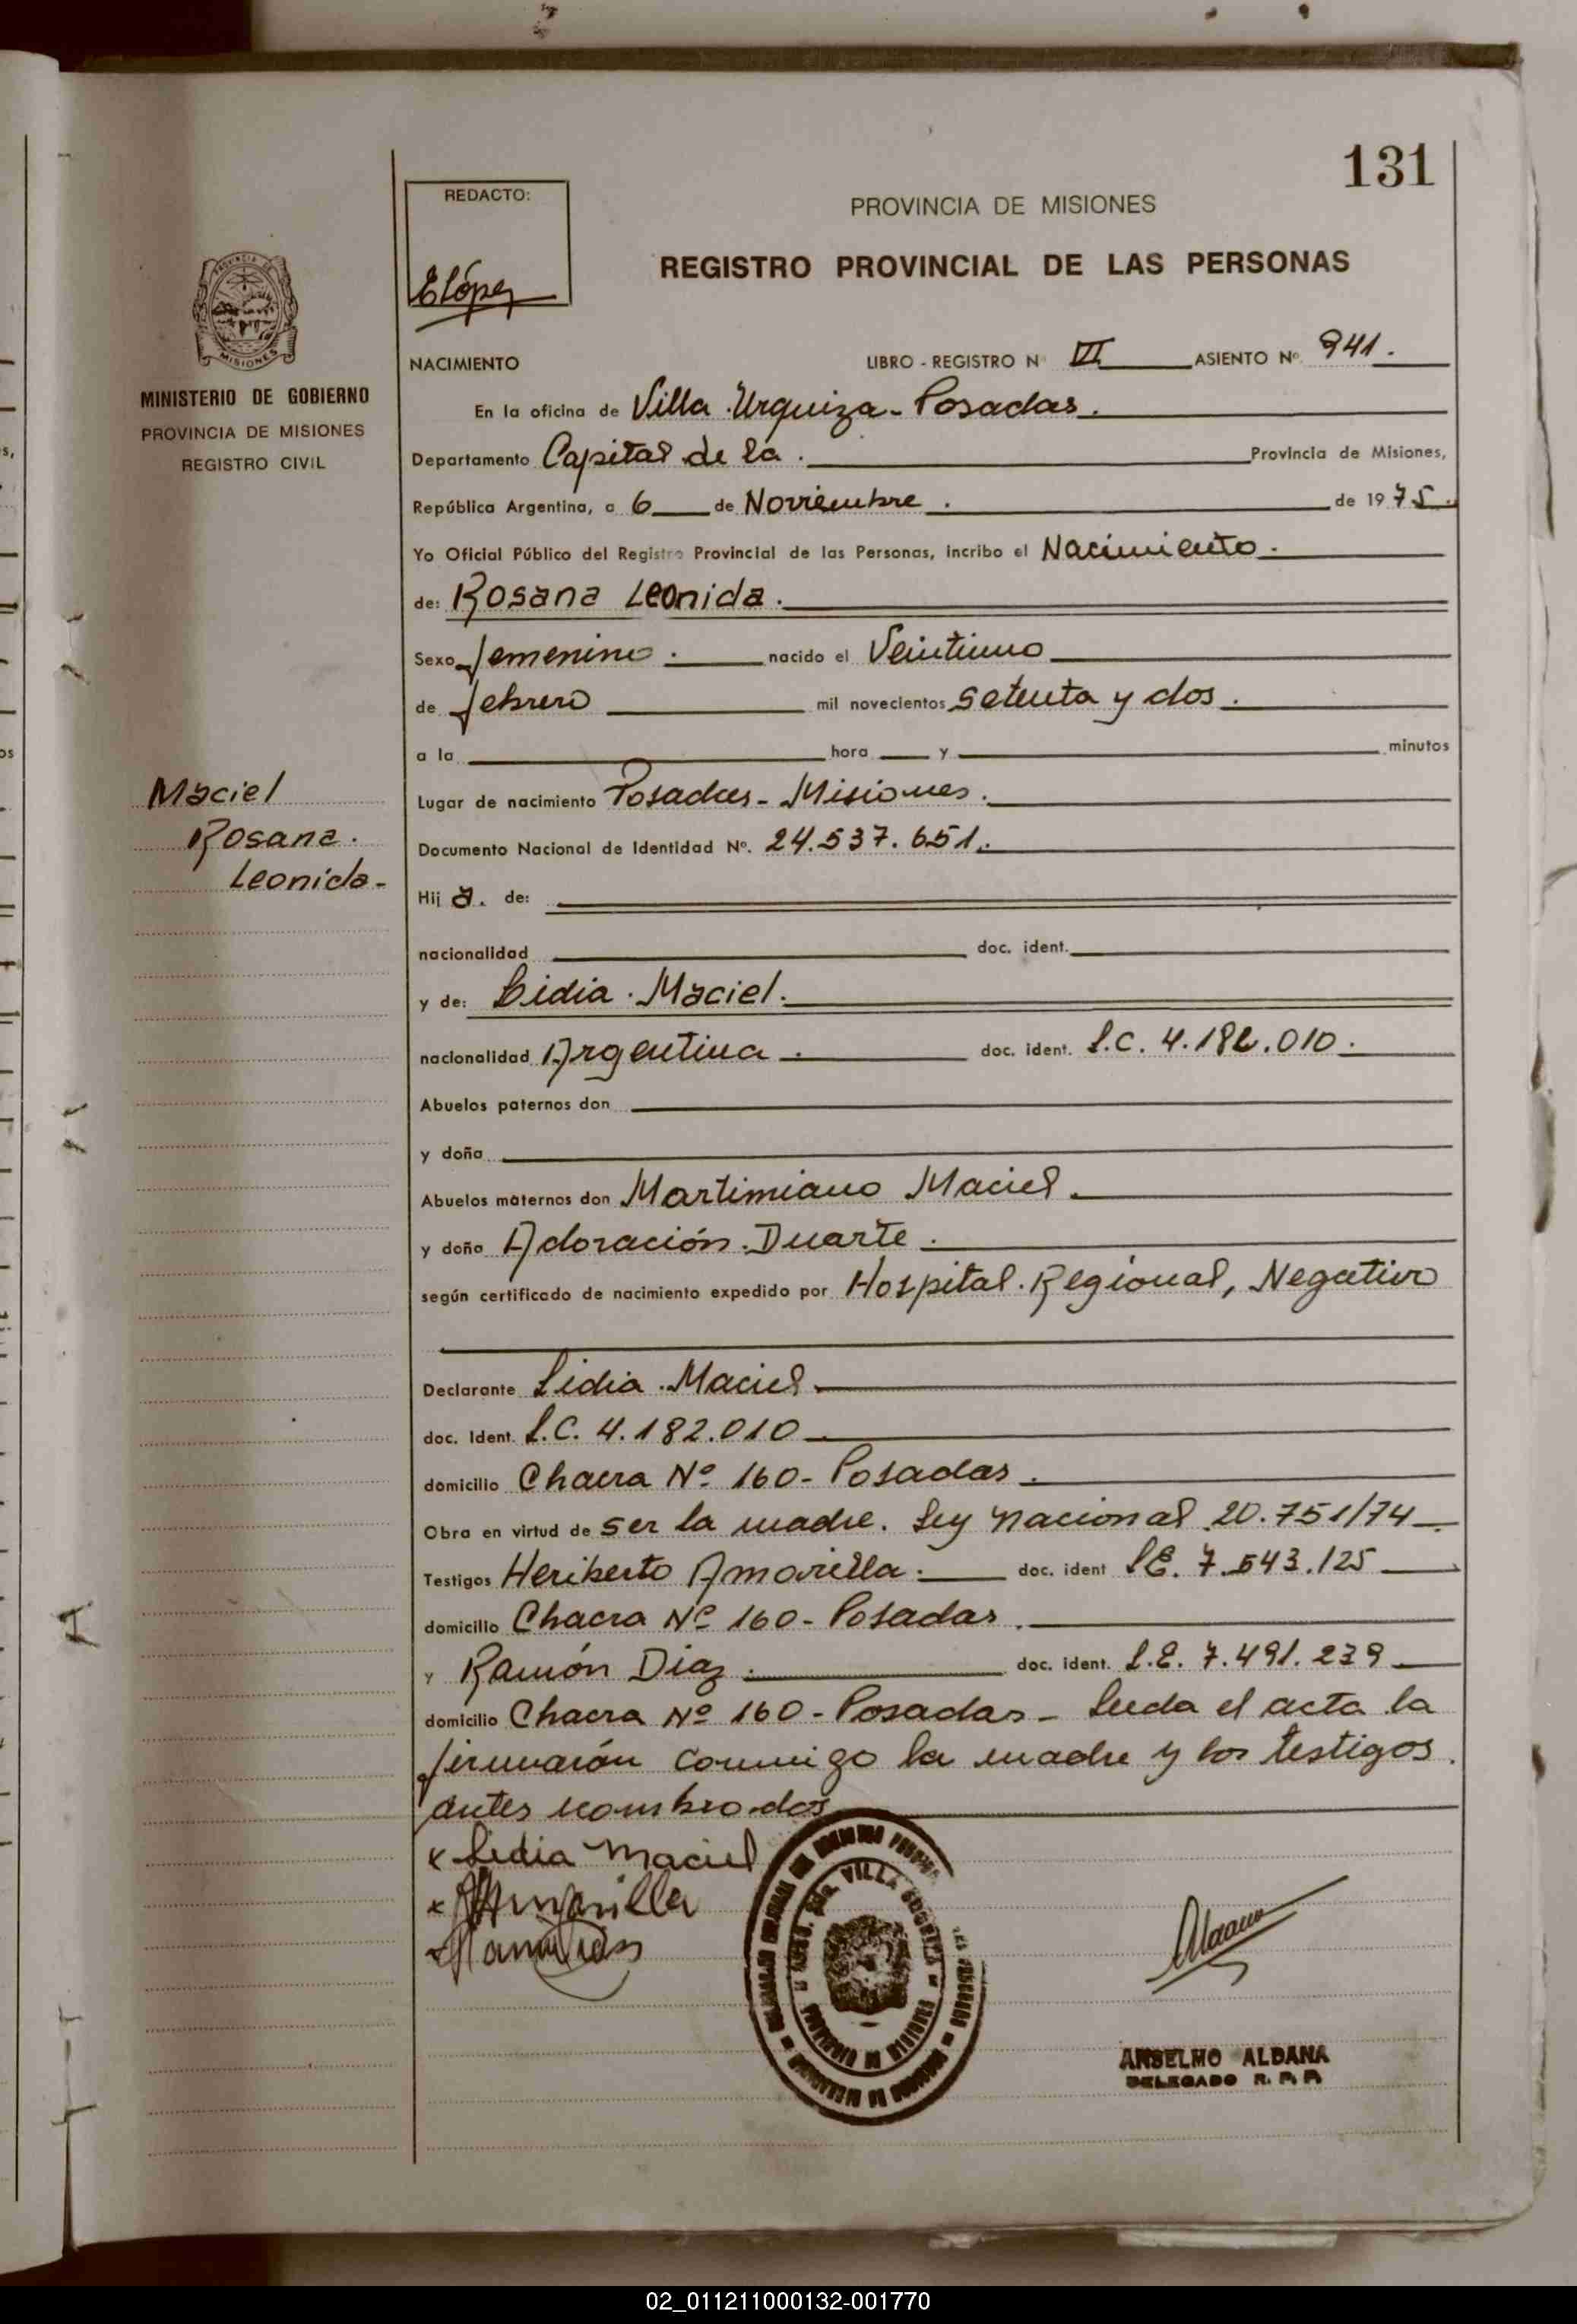 131
REDACTO:
ELópez
PROVINCIA DE MISIONES
REGISTRO PROVINCIAL DE LAS PERSONAS
PROVINCIA DE
MISIONES
MINISTERIO DE GOBIERNO
PROVINCIA DE MISIONES
REGISTRO CIVIL
NACIMIENTO LIBRO - REGISTRO Nº VI ASIENTO Nº 941.
En la oficina de Villa Urquiza - Posadas.
Departamento Capital de la. Provincia de Misiones,
República Argentina, a 6 de Noviembre. de 1975.
Yo Oficial Público del Registro Provincial de las Personas, incribo el Nacimiento.
de: Rosana Leonida.
Sexo femenino. nacido el Veintiuno
de febrero mil novecientos setenta y dos.
a la hora y minutos
Lugar de nacimiento Posadas - Misiones.
Maciel
Rosana.
Leonida -
Documento Nacional de Identidad Nº. 24.537.651.
Hij a. de:
nacionalidad doc. ident.
y de: Lidia Maciel.
nacionalidad Argentina. doc. ident. L.C. 4.182.010.
Abuelos paternos don
y doña
Abuelos maternos don Martimiano Maciel.
y doña Adoración Duarte.
según certificado de nacimiento expedido por Hospital Regional, Negativo
Declarante Lidia Maciel
doc. Ident. L.C. 4.182.010
domicilio Chacra Nº 160 - Posadas.
Obra en virtud de ser la madre. Ley Nacional 20.751/74
Testigos Heriberto Amarilla. doc. ident L.E. 7.543.125
domicilio Chacra Nº 160 - Posadas.
y Ramón Diaz. doc. ident. L.E. 7.491.239
domicilio Chacra Nº 160 - Posadas - Leida el acta la
firmarón conmigo la madre y los testigos
antes nombrados
x Lidia Maciel
x HAmarilla
ANSELMO ALDANA
DELEGADO R. P. P.
02_011211000132-001770